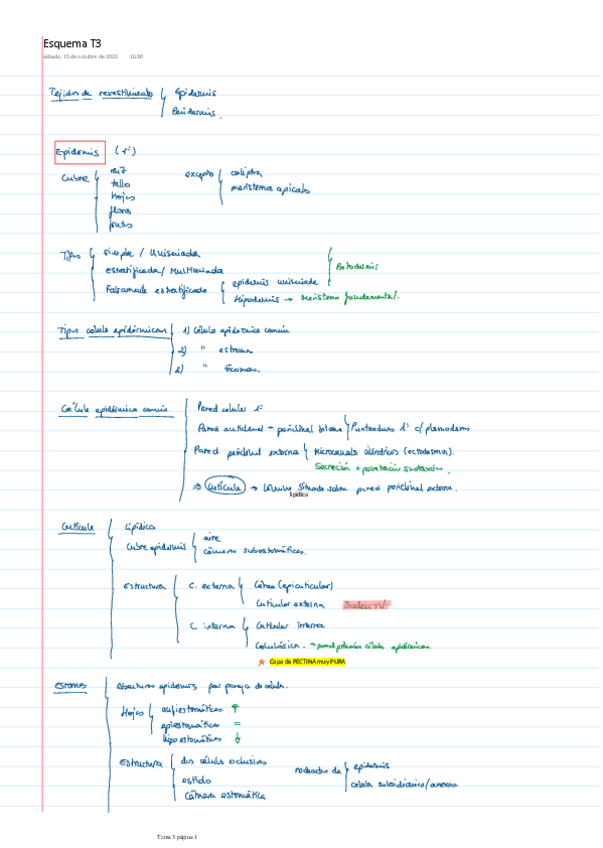 Esquema T3
sábado, 15 de octubre de 2022 16:30
Tejidos de revestimiento Epidermis
Peridermis.
Epidermis (1º)
Cubre raíz excepto caliptra
tallo meristemos apicales
hojas
flores
frutos
Tipos Simple / Uniseriada
Estratificada / Multiseriada Protodermis
Falsamente estratificada epidermis uniseriada
Hipodermis → Meristemo fundamental.
Tipos célula epidérmicas 1) Célula epidérmica común
2) " estomas
3) " tricomas.
Célula epidérmica común Pared celular 1º
Pared anticlinal + periclinal interna Punteaduras 1º c/ plasmodesmos
Pared periclinal externa Microcanales cilíndricos (ectodesmos).
Secreción + penetración sustancias.
⇒ Cutícula → Lámina situada sobre pared periclinal externa.
lipídica
Cutícula Lipídica
Cubre epidermis aire
cámaras subestomáticas.
Estructura C. externa Cérea (epicuticular)
Cuticular externa Sudan IV
C. interna Cuticular interna
Celulósica. → pared primaria células epidérmicas.
Capa de PECTINA muy PURA
Estomas Aberturas epidermis por pareja de células.
Hojas anfiestomáticas ↑
epiestomáticas =
hipoestomáticas ↓
Estructura dos células oclusivas rodeadas de epidermis
ostiolo célula subsidiarias/anexas
Cámara estomática
Tema 3 página 1